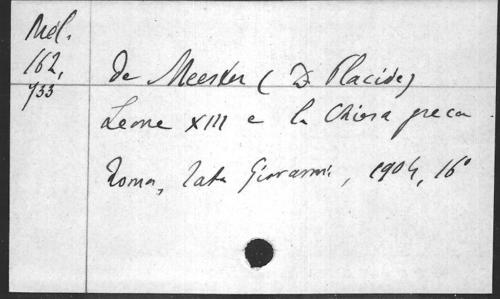 Mél.
162,
933
de Meester (D. Placide)
Leone XIII e la Chiesa greca
Roma, Tata Giovanni, 1904, 16°